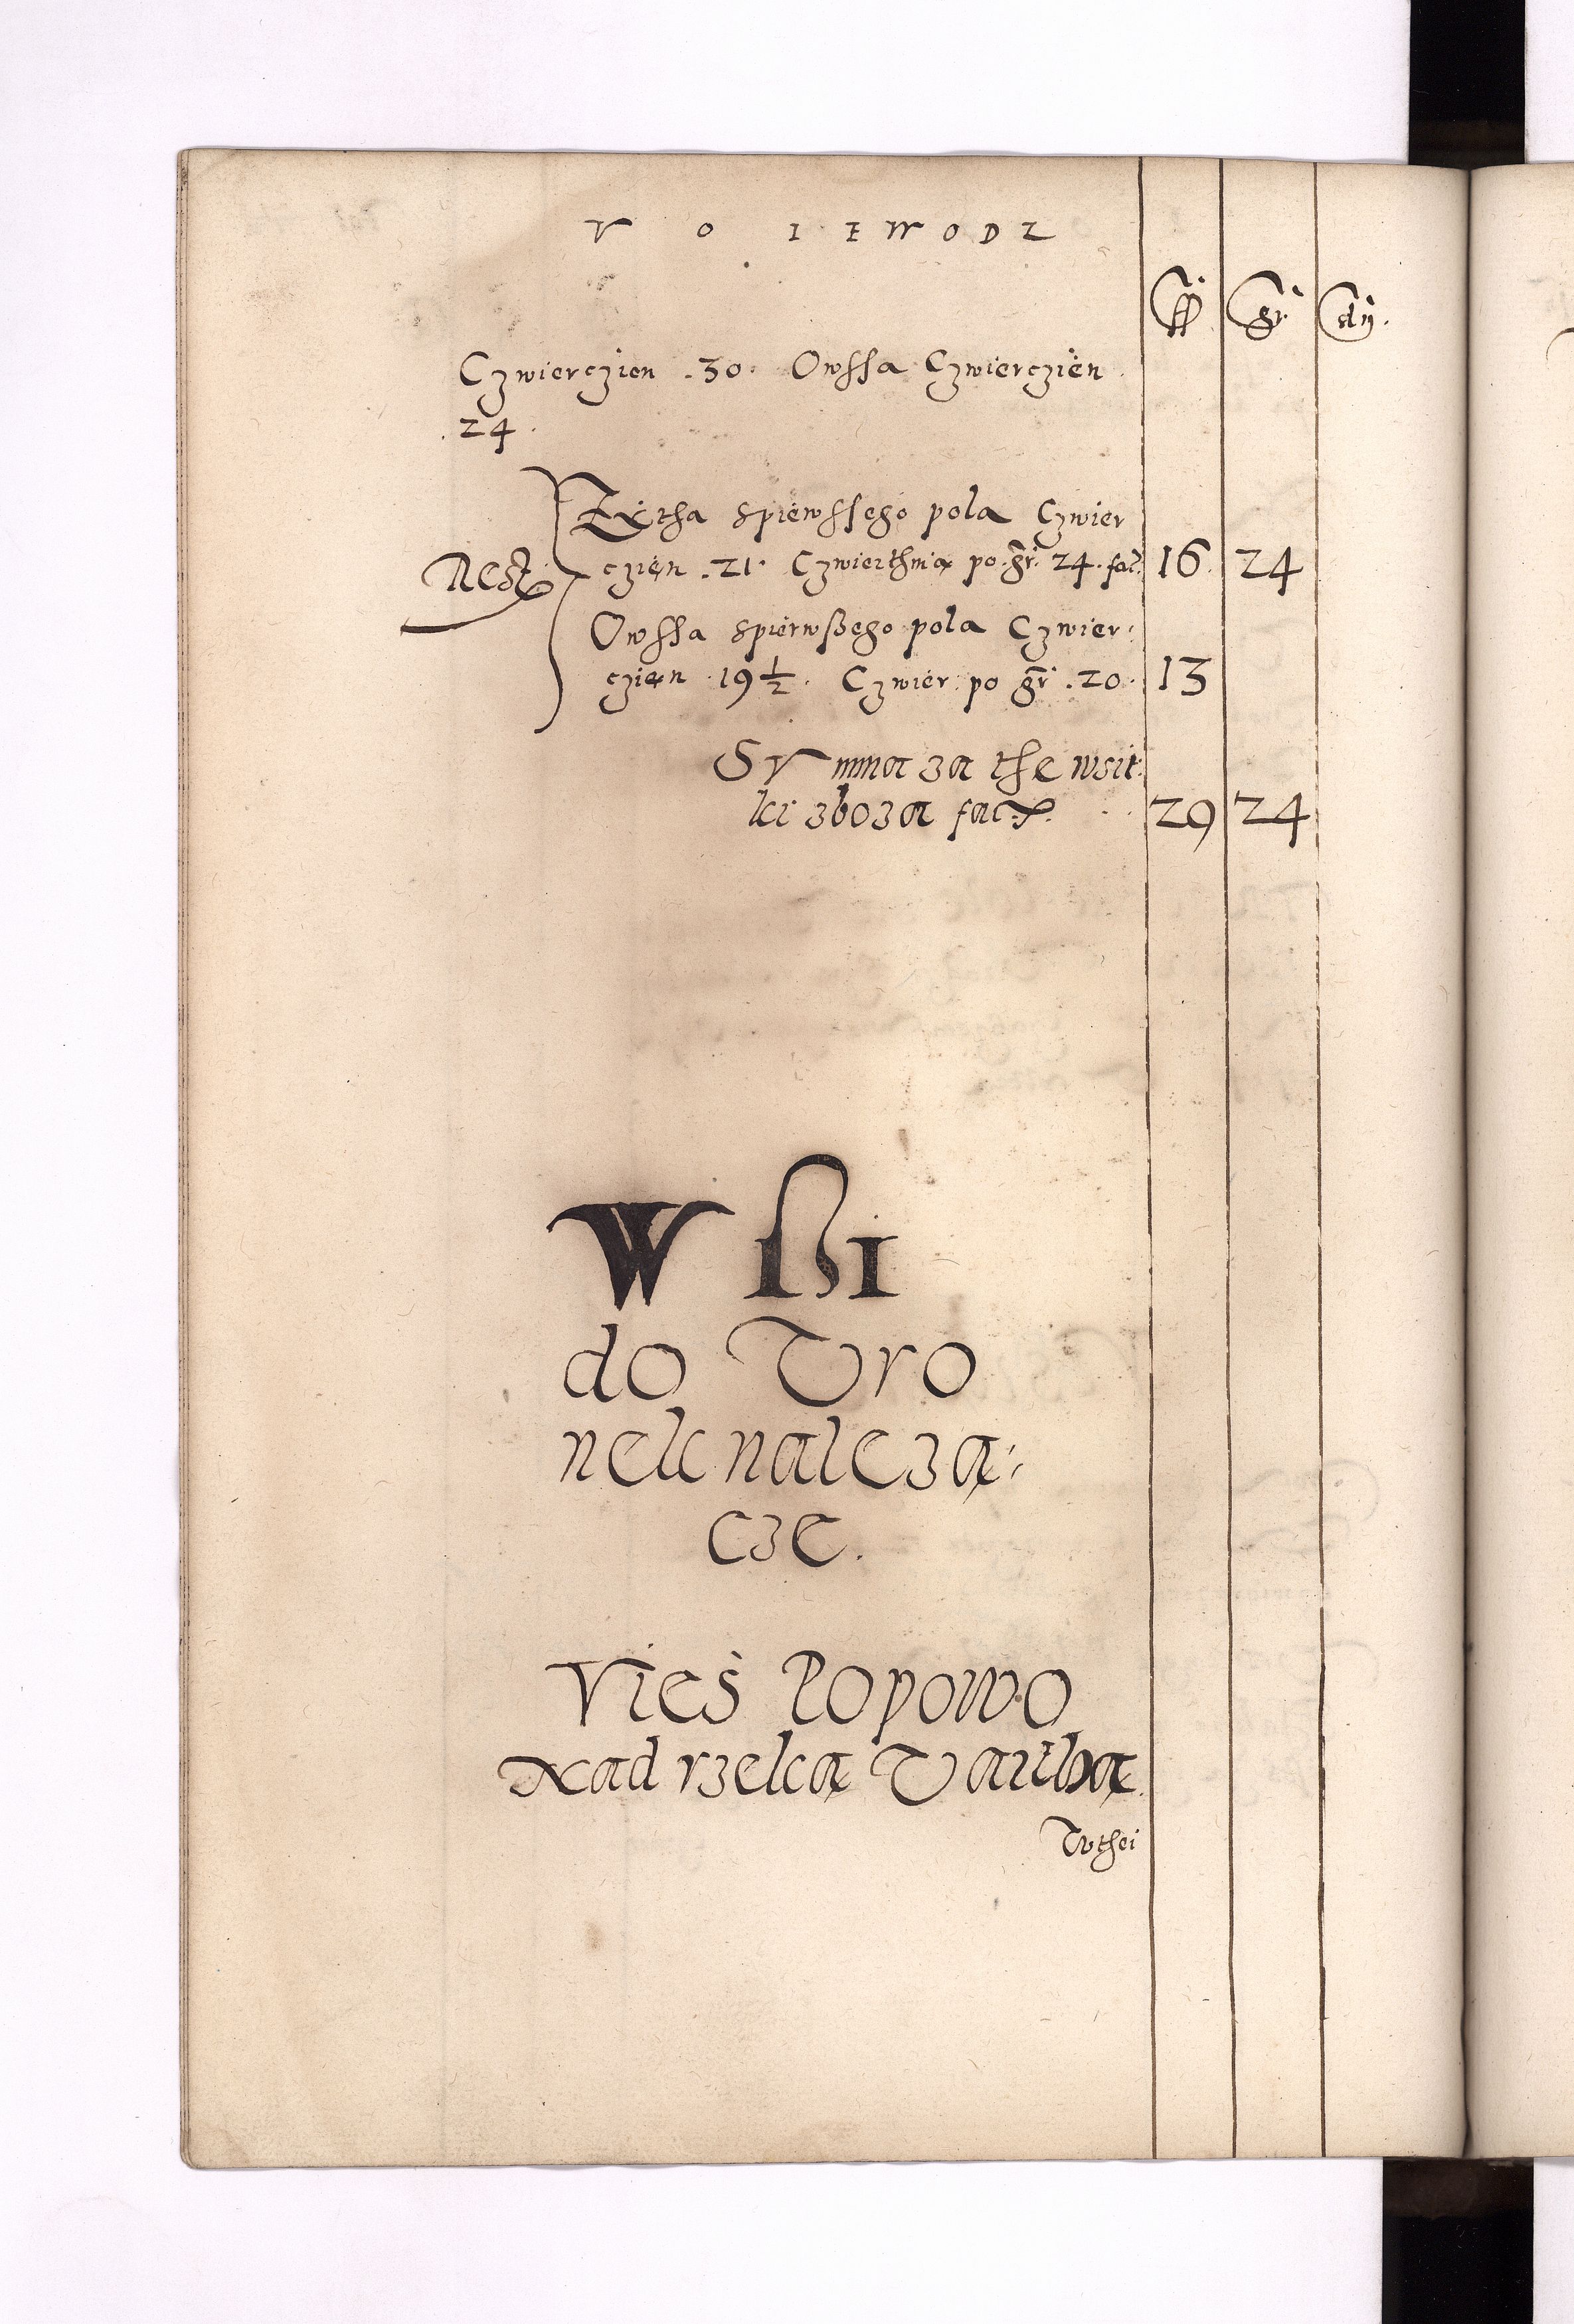 V O I E W O D Z
fl gr dń.
Czwierczien .30. Owssa Czwierczien
.24.
Rest
Zÿtha spiewssego pola Czwier
czięn .21. Czwierthnią po gr. 24. fac. 16. 24
Owssa spierwßego pola Czwier:
czięn .19 1/2. Czwier: po gr .20. 13
SVmma za the wsit:
ki zboza fact. 29 24
W ſßi
do Tro
nek nalezą:
cze.
Vieś Popowo
Nad rzeką Varthą.
Tvthei